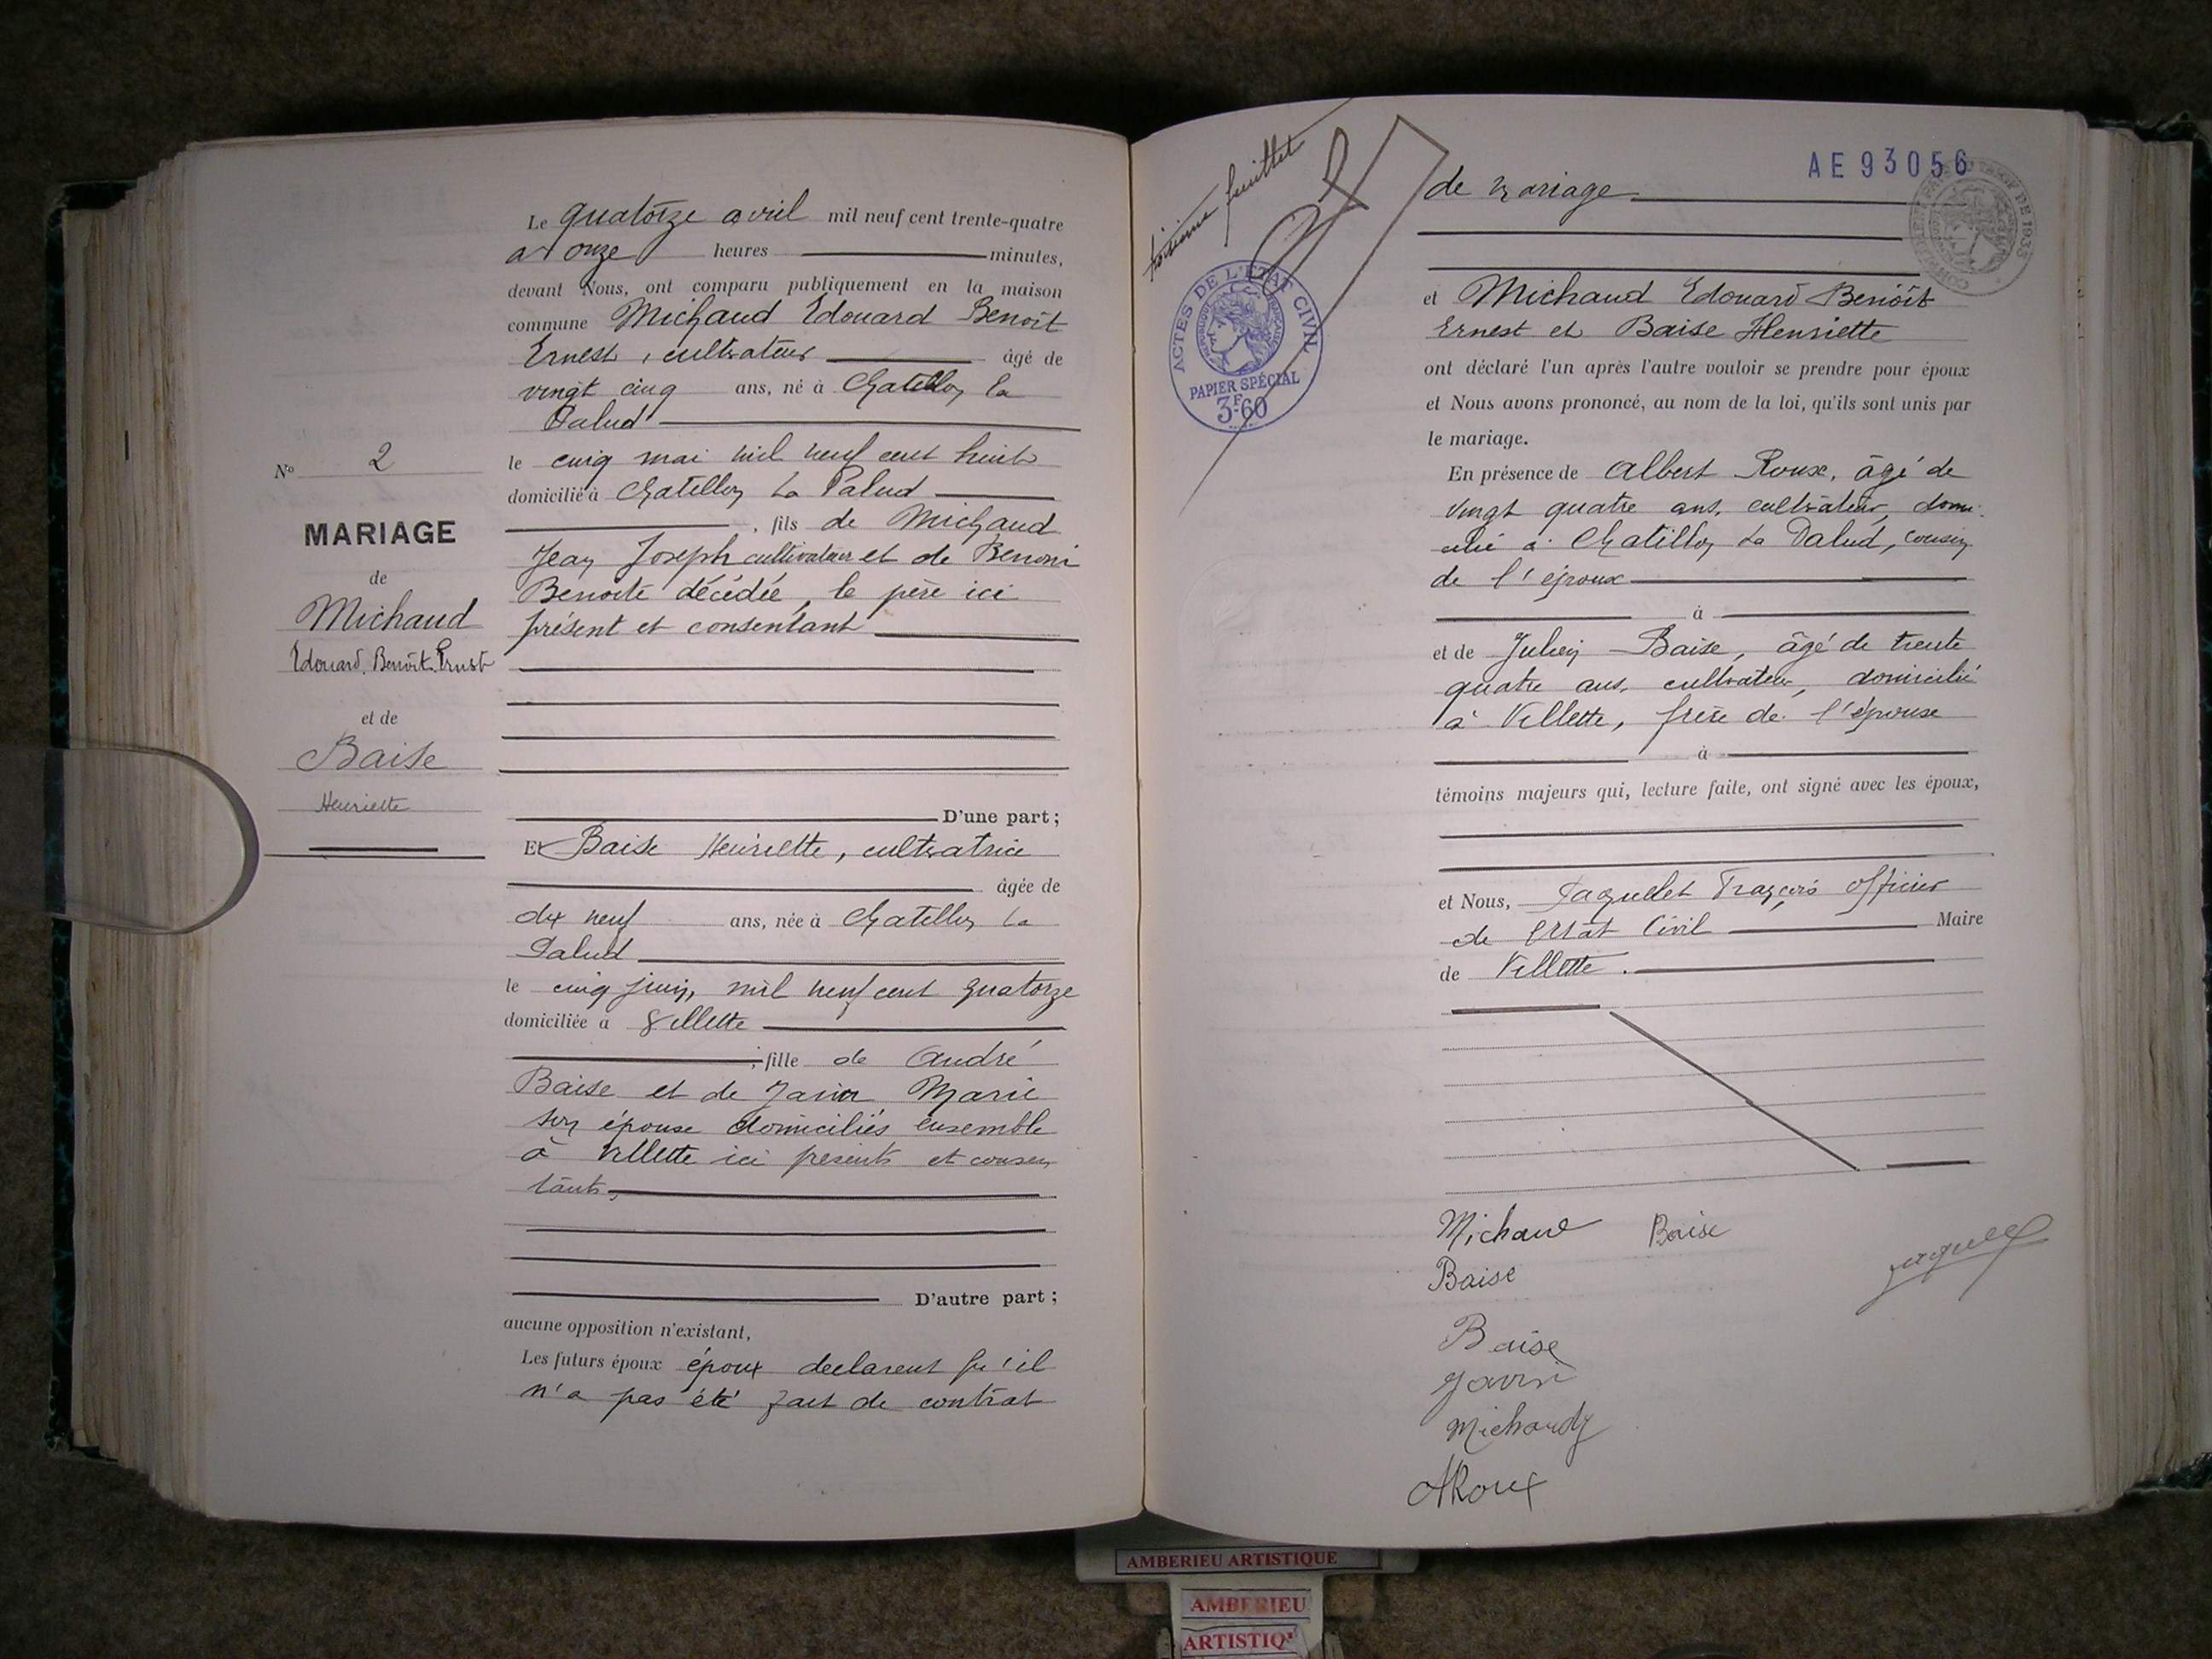 Nº 2
MARIAGE
de
Michaud
Edouard. Benoît. Ernest
et de
Baise
Henriette
Le quatorze avril mil neuf cent trente-quatre
à onze heures minutes,
devant Nous, ont comparu publiquement en la maison
commune Michaud Edouard Benoît
Ernest, cultivateur âgé de
vingt cinq ans, né à Chatillon la
Palud
le cinq mai mil neuf cent huit
domicilié à Chatillon La Palud
, fils de Michaud
Jean Joseph cultivateur et de Benoni
Benoite décédée, le père ici
présent et consentant
D'une part ;
Et Baise Henriette, cultivatrice
âgée de
dix neuf ans, née à Chatillon la
Palud
le cinq juin, mil neuf cent quatorze
domiciliée à Villette
, fille de André
Baise et de Marie
son épouse domiciliés ensemble
à Villette ici présents et consen
tants,
D'autre part ;
aucune opposition n'existant,
Les futurs époux époux declarent qu'il
n'a pas été fait de contrat
troisième feuillet
AE 93056
ACTES DE L'ÉTAT CIVIL
RÉPUBLIQUE FRANÇAISE
PAPIER SPÉCIAL
3F.60
de mariage
et Michaud Edouard Benoît
Ernest et Baise Henriette
ont déclaré l'un après l'autre vouloir se prendre pour époux
et Nous avons prononcé, au nom de la loi, qu'ils sont unis par
le mariage.
En présence de Albert Roux, âgé de
vingt quatre ans, cultivateur, domi-
cilié à Chatillon La Palud, cousin
de l'époux
à
et de Julien Baise, âgé de trente
quatre ans, cultivateur, domicilié
à Villette, frère de l'épouse
à
témoins majeurs qui, lecture faite, ont signé avec les époux,
et Nous, Jaquellet François officier
de l'Etat Civil Maire
de Villette.
Michaud Baise
Baise
Baise
ARoux
AMBERIEU ARTISTIQUE
AMBERIEU
ARTISTIQ